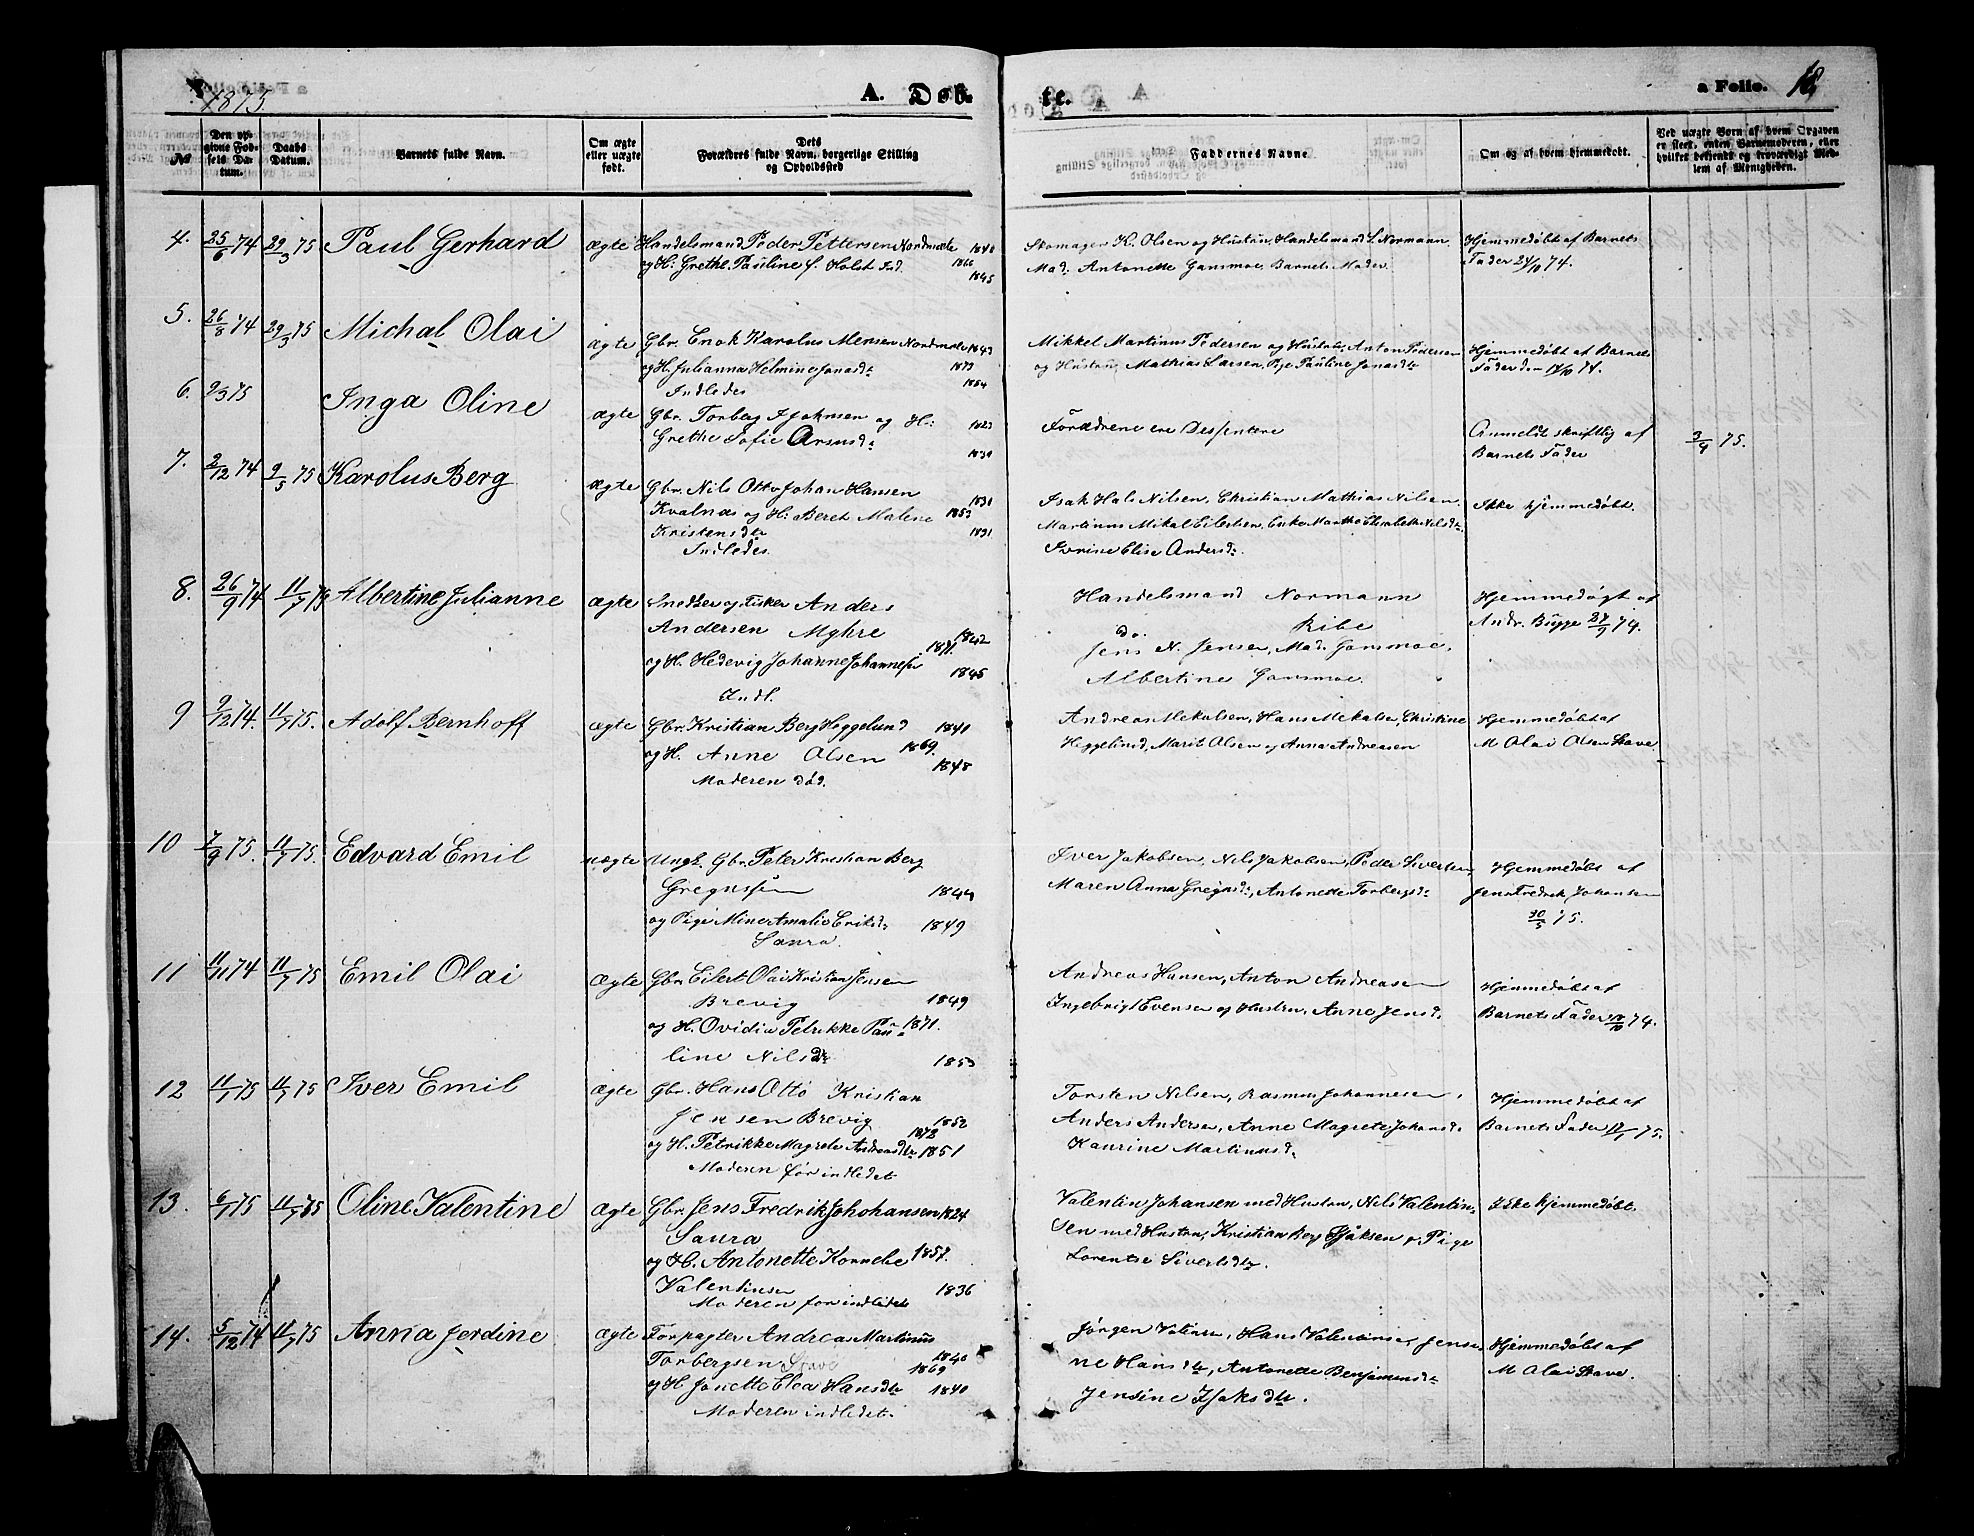 1875.
A. Døb
te.
a Folio. 18
No
Den opgivne Fødsels Datum.
Daabs Datum.
Barnets fulde Navn.
Om ægte eller uægte født.
Dets Forældres fulde Navn, borgerlige Stilling og Opholdssted
Faddernes Navne.
Om og af hvem hjemmedøbt.
Ved uægte Born af hvem Opgaven er skeet, enten Barnemoderen, eller hvilket bekjendt og troværdigt Medlem af Menigheden.
4. 25/6 74 29/3 75 Paul Gerhard ægte Handelsmand Peder Pettersen Nordmæle 1840
og H: Grethe Pauline S. Holst Ind. 1866 1845
Skomager H. Olsen og Hustru, Handelsmand S. Normann
Mad. Antonette Gansmoe, Barnets Moder.
Hjemmedøbt af Barnets
Fader 24/10 74.
5. 26/8 74 29/3 75 Michal Olai ægte Gbr. Enok Karolus Mensen Nordmæle 1843
og H. Julianna Helmine Jonasdt 1873
Indledes 1854
Mikkel Martinus Pedersen og Hustru, Anton Pedersen
og Hustru, Mathias Larsen, Pige Pauline Jonasdt
Hjemmedøbt af Barnets
Fader den 18/10 74.
6. 2/3 75 Inga Oline ægte Gbr. Torberg A Johnsen og H: 1823
Grethe Sofie Aronsd: 1830
Forældrene ere Dessentere
Anmeldt skriftlig af
Barnets Fader
3/4 75.
7. 2/12 74 9/5 75 Karolus Berg ægte Gbr. Nils Otto Johan Hansen
Kvalnæs og H: Beret Malene 1831 1853
Kristensdtr 1831
Indledes.
Isak Hals Nilsen, Christian Mathias Nilsen
Martinus Mikal Eilertsen, Enke Martha Elisabeth Nilsdt
Ivrine Elise Andersdt.
Ikke hjemmedøbt.
8. 26/9 74 11/7 75 Albertine Julianne ægte Snedker og Fisker Anders
Andersen Myhre 1842
og H. Hedevig Johanne Johannesd 1871. 1845
Indl.
Handelsmand Normann
do. Ribe
Jens N. Jensen, Mad. Gansmoe,
Albertine Gansmoe.
Hjemmedøgt af
Andr. Bugge 27/9 74.
9 9/12 74. 11/7 75. Adolf Bernhoff ægte Gbr. Kristian Berg Heggelund 1841
og H. Anne Olsen 1869. 1848
Moderen død.
Andreas Mekalsen, Hans Mekalse, Christine
Heggelund, Marit Olsen og Anna Andreasen
Hjemmedøbt af
M Olai Olsen Stave.
10 7/4 75. 11/7 75. Edvard Emil uægte Ungk. Gbr. Peter Kristian Berg
Gregussen 1844
og Pige Mine Amalie Eriksd: 1849
Saura.
Iver Jakobsen, Nils Jakobsen, Peder Sivertsen
Maren Anna Gregusd:, Antonette Torbergsd:
Hjemmedøbt af
Jens Fredrik Johansen
30/5 75.
11 11/11 74 11/7 75 Emil Olai ægte Gbr. Eilert Olai Kristian Jensen
Brevig 1849
og H. Ovidia Petrikke Pau 1871.
line Nilsdtr 1853
Andreas Hansen, Anton Andreasen
Ingebrigt Evensen og Hustru, Anne Jensd.
Hjemmedøbt af
Barnets Fader 74.
12 11/1 75 11/7 75 Iver Emil ægte Gbr. Hans Otto Kristian
Jensen Brevig 1852
og H. Petrikke Magrete Andreasdtr 1872 1851
Moderen før indledet
Torsten Nilsen, Rasmus Johannesen,
Anders Andersen, Anne Magrete Johansd:
Kaurine Martinusd:
Hjemmedøbt af
Barnets Fader 75.
13. 6/1 75 11/7 75 Oline Valentine ægte Gbr. Jens Fredrik Johohansen 1824
Saura
og H. Antonette Kornelie 1857.
Valentinsen 1836
Moderen før indledet
Valentin Johansen med Hustru, Nils Valentin
sen med Hustru, Kristian Berg Isaksen, Pige
Lorentse Sivertsdtr.
Ikke hjemmedøbt.
14. 5/12 74 11/7 75 Anna Jerdine ægte Forpagter Andreas Martinus
Torbergsen Stave 1840 1869
og H Janette Elea Hansdtr 1840
Moderen indledet.
Jørgen Valentin, Hans Valentinsen, Jensi
ne Hansdtr, Antonette Benjaminsdtr
Jensine Isaksdtr.
Hjemmedøbt af
M Olai Stave.